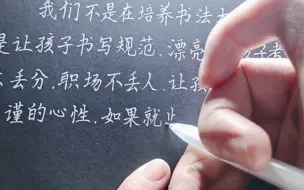 我们不是在培养书法
是让孩子书写规范.漂亮
丢分,职场不丢人.让孩
谨的心性.如果就